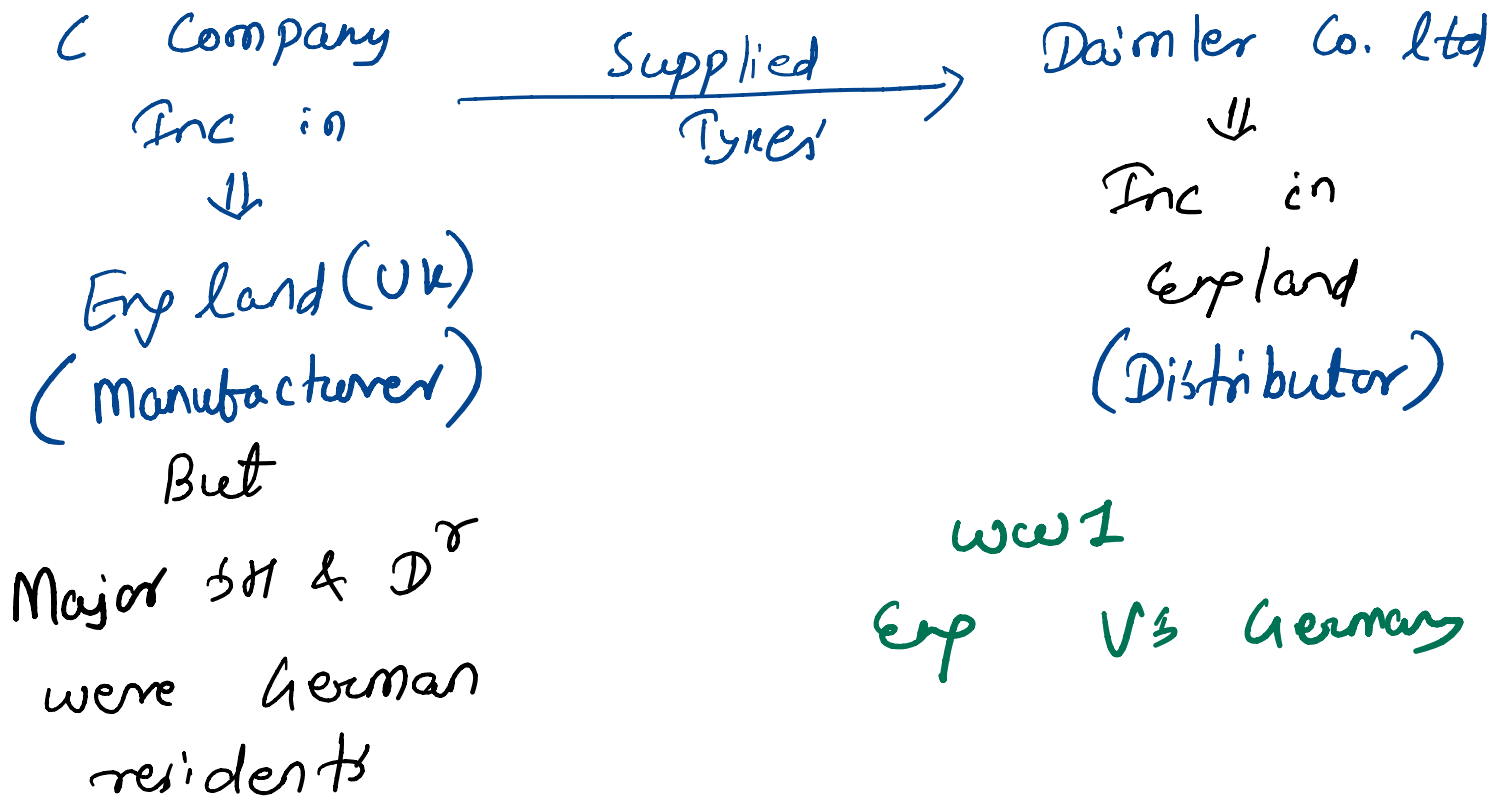 C Company
Inc in
⇓
England (UK)
(Manufacturer)
But
Major SH & Dr
were German
residents
Supplied
Tyres
Daimler Co. ltd
⇓
Inc in
England
(Distributor)
WW1
Eng Vs Germany